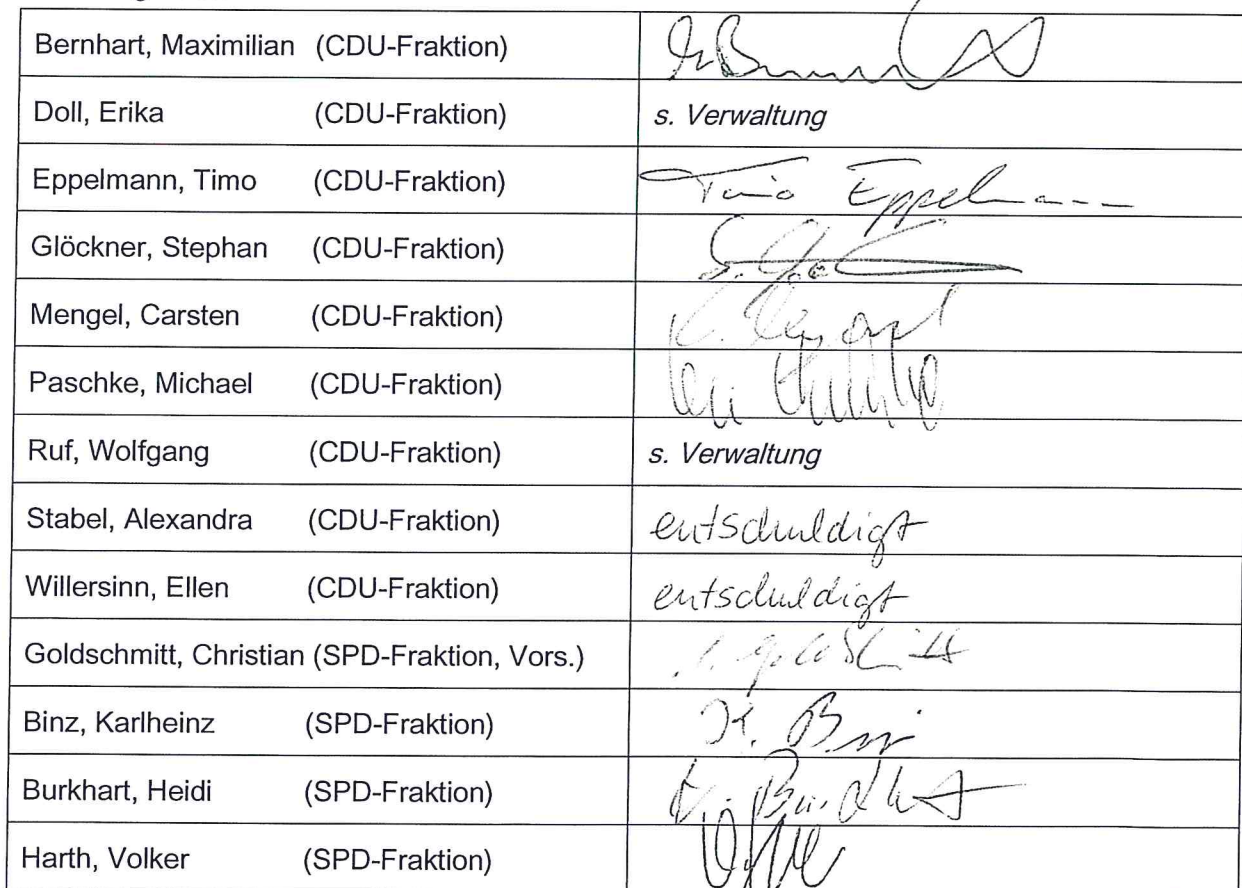 Bernhart, Maximilian (CDU-Fraktion)
Doll, Erika (CDU-Fraktion) s. Verwaltung
Eppelmann, Timo (CDU-Fraktion) Timo Eppelmann
Glöckner, Stephan (CDU-Fraktion)
Mengel, Carsten (CDU-Fraktion)
Paschke, Michael (CDU-Fraktion)
Ruf, Wolfgang (CDU-Fraktion) s. Verwaltung
Stabel, Alexandra (CDU-Fraktion) entschuldigt
Willersinn, Ellen (CDU-Fraktion) entschuldigt
Goldschmitt, Christian (SPD-Fraktion, Vors.)
Binz, Karlheinz (SPD-Fraktion)
Burkhart, Heidi (SPD-Fraktion)
Harth, Volker (SPD-Fraktion)